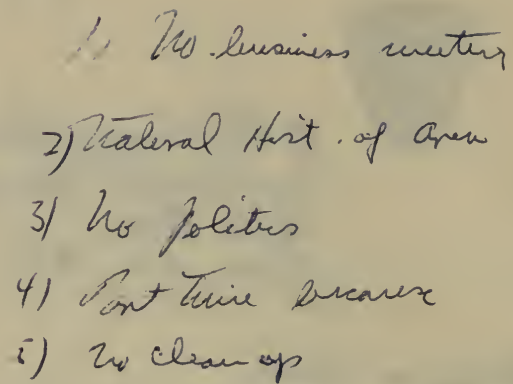 1) No business meeting
2) Natural Hist. of Area
3) No Politics
4) Part Time
5) No Clean up